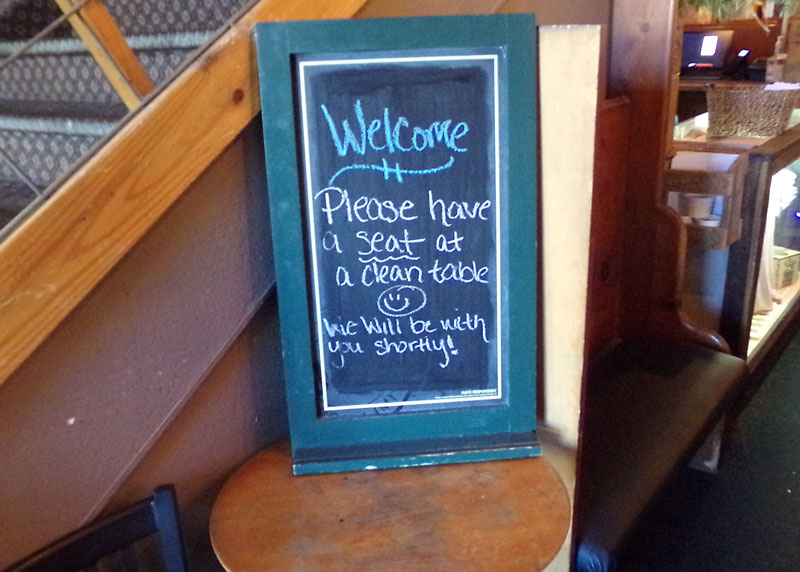 Welcome
Please have
a seat at
a clean table
We Will be with
you shortly!